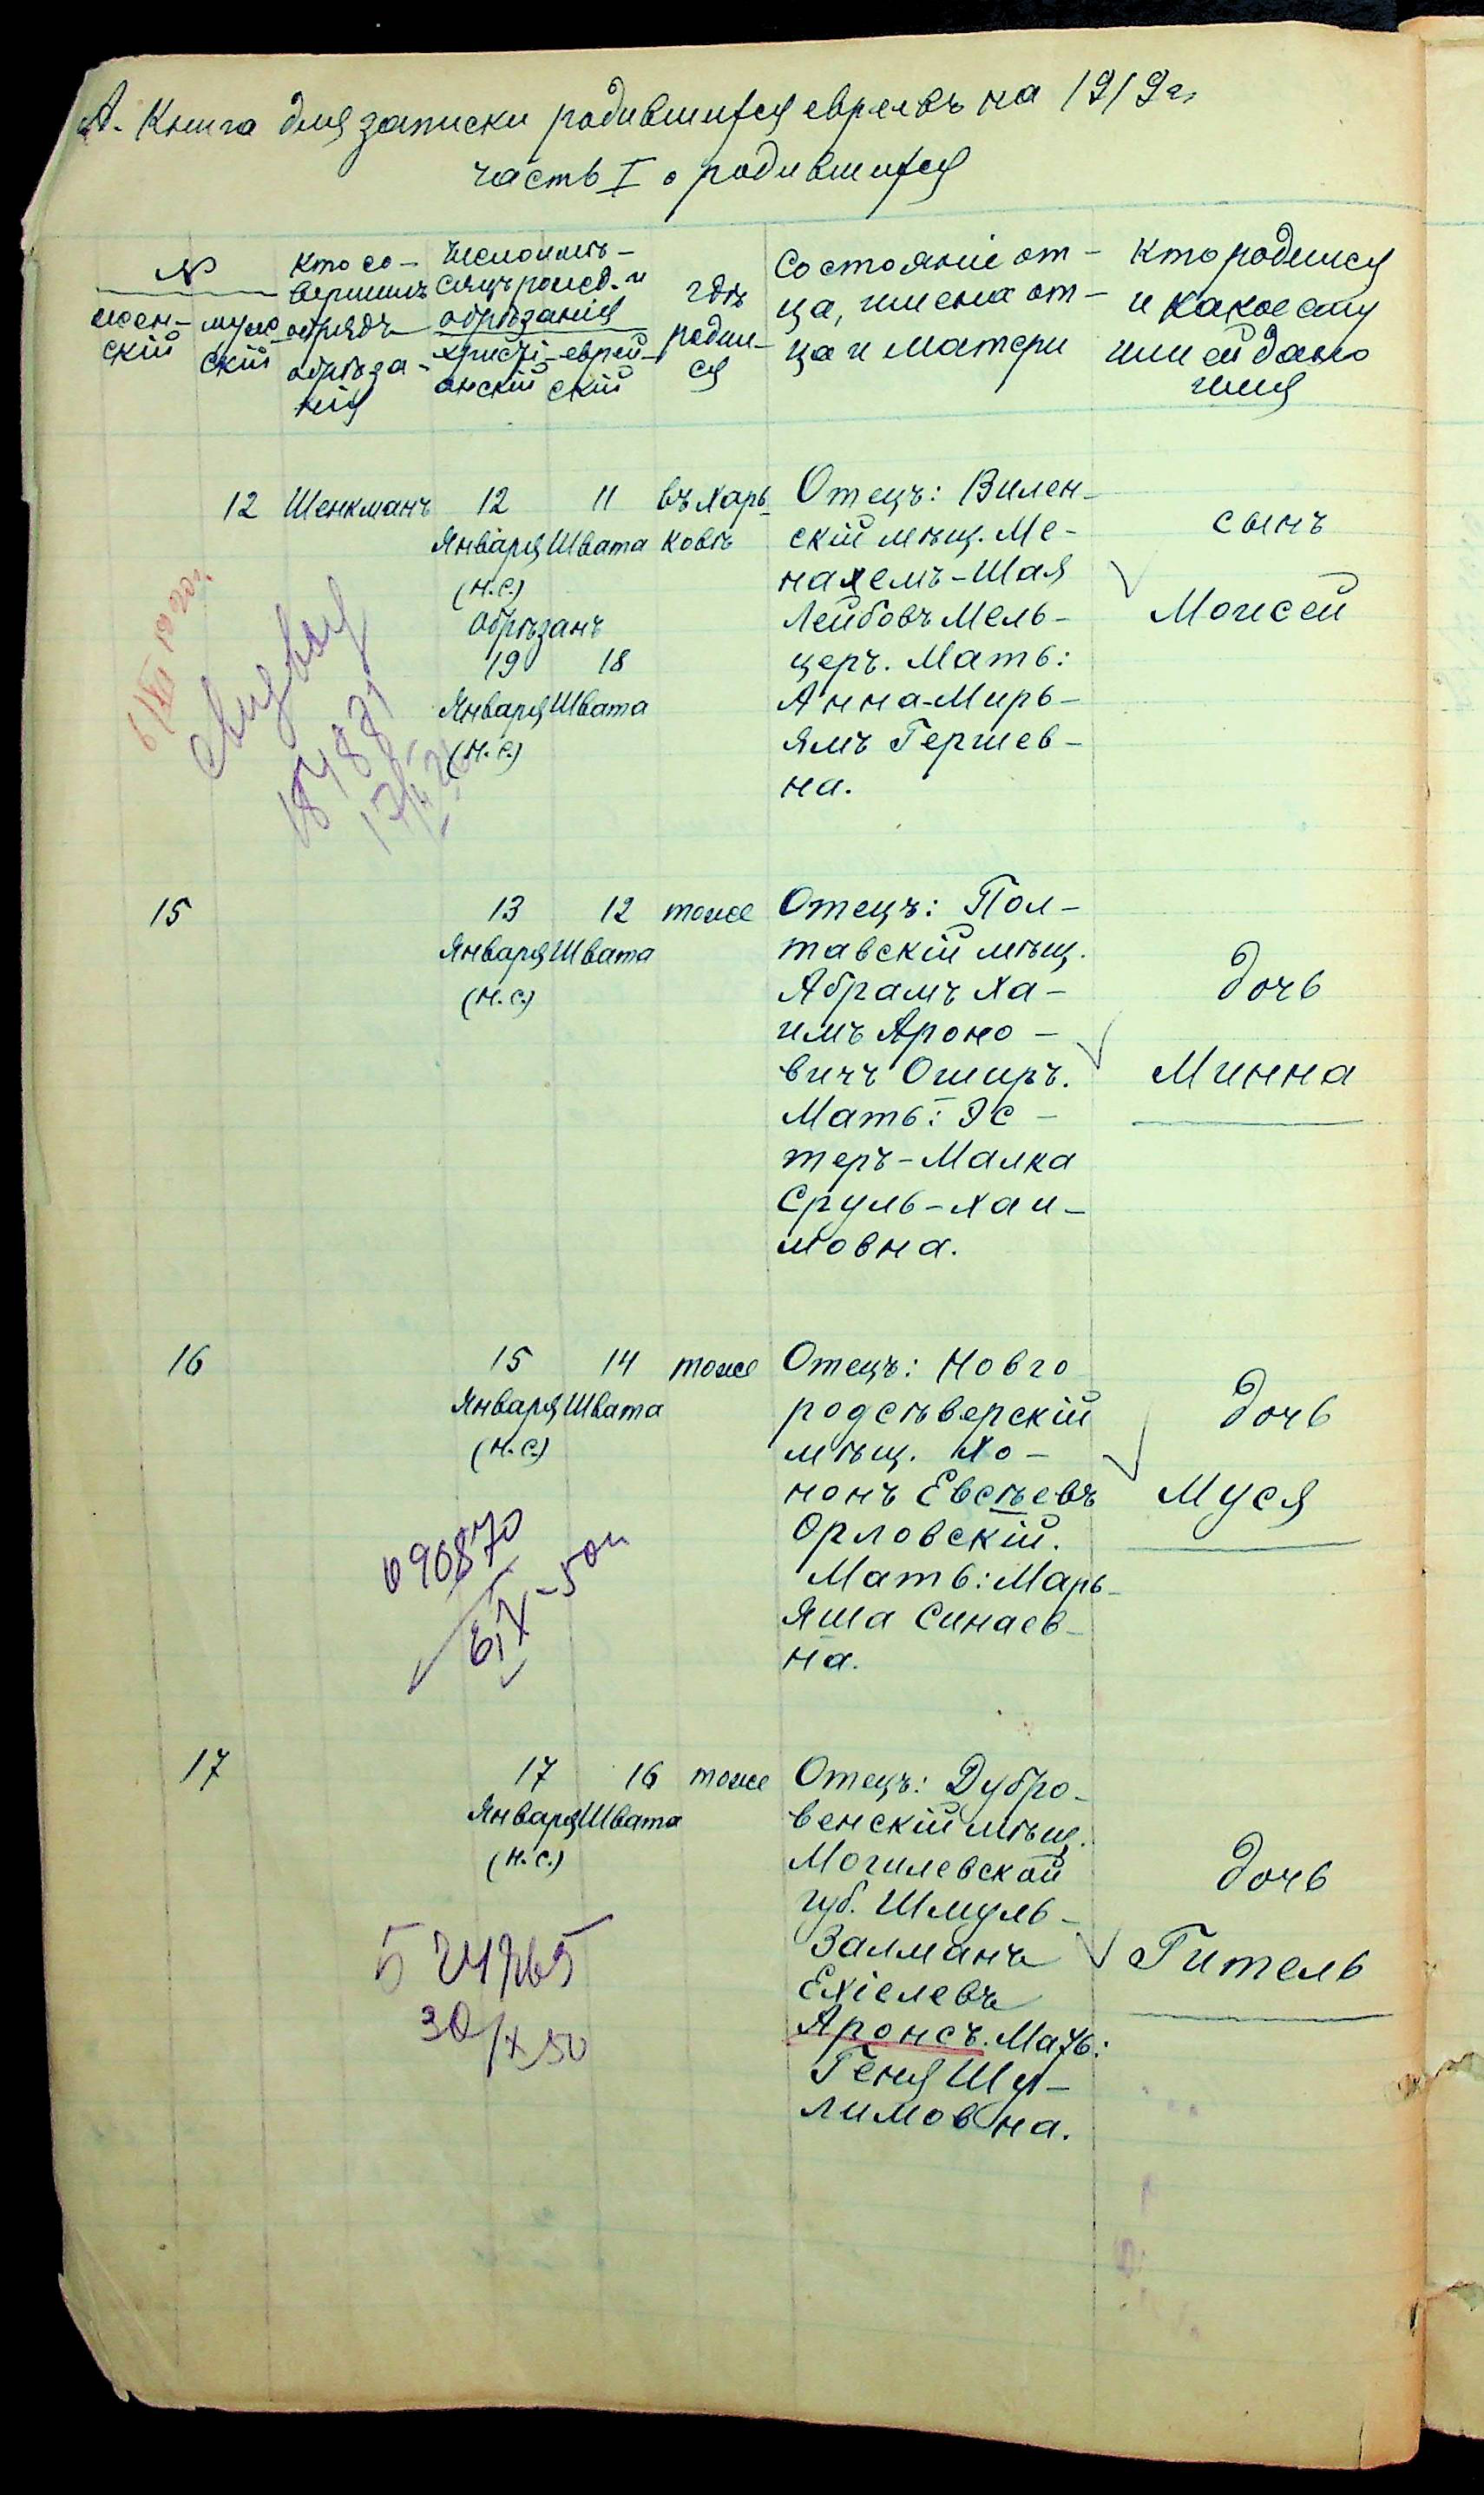 А. Книга для записки родившихся евреевъ на 1919 г.
часть I о родившихся
№
жен-
скій
муж-
скій
Кто со-
вершилъ
обрядъ
обрѣза-
нія
Число и мѣ-
сяцъ рожд. и
обрѣзанія
христі-
анскій
еврей-
скій
гдѣ
родил-
ся
Состояніе от-
ца, имена от-
ца и матери
Кто родился
и какое ему
или ей дано
имя
12
Шенкманъ
12
Января
(н.с.)
Обрѣзанъ
19
Января
(н.с.)
11
Швата
18
Швата
въ Харь-
ковѣ
Отецъ: Вилен-
скій мѣщ. Ме-
нахемъ-Шая
Лейбовъ Мель-
церъ. Мать:
Анна-Мирь-
ямъ Гершев-
на.
сынъ
Моисей
6/XII 1920 г.
15
13
Января
(н.с.)
12
Швата
тоже
Отецъ: Пол-
тавскій мѣщ.
Абрамъ Ха-
имъ Ароно-
вичъ Оширъ.
Мать: Эс-
теръ-Малка
Сруль-Хаи-
мовна.
дочь
Минна
16
15
Января
(н.с.)
14
Швата
тоже
Отецъ: Новго
родсѣверскій
мѣщ. Хо-
нонъ Евсѣевъ
Орловскій.
Мать: Марь-
яша Синаев-
на.
дочь
Муся
090870
17
17
Января
(н.с.)
16
Швата
тоже
Отецъ: Дубро-
венскій мѣщ.
Могилевской
губ. Шмуль-
Залманъ
Ехіелевъ
Аронсъ. Мать:
Геня Шу-
лимовна.
дочь
Гитель
30/X 50